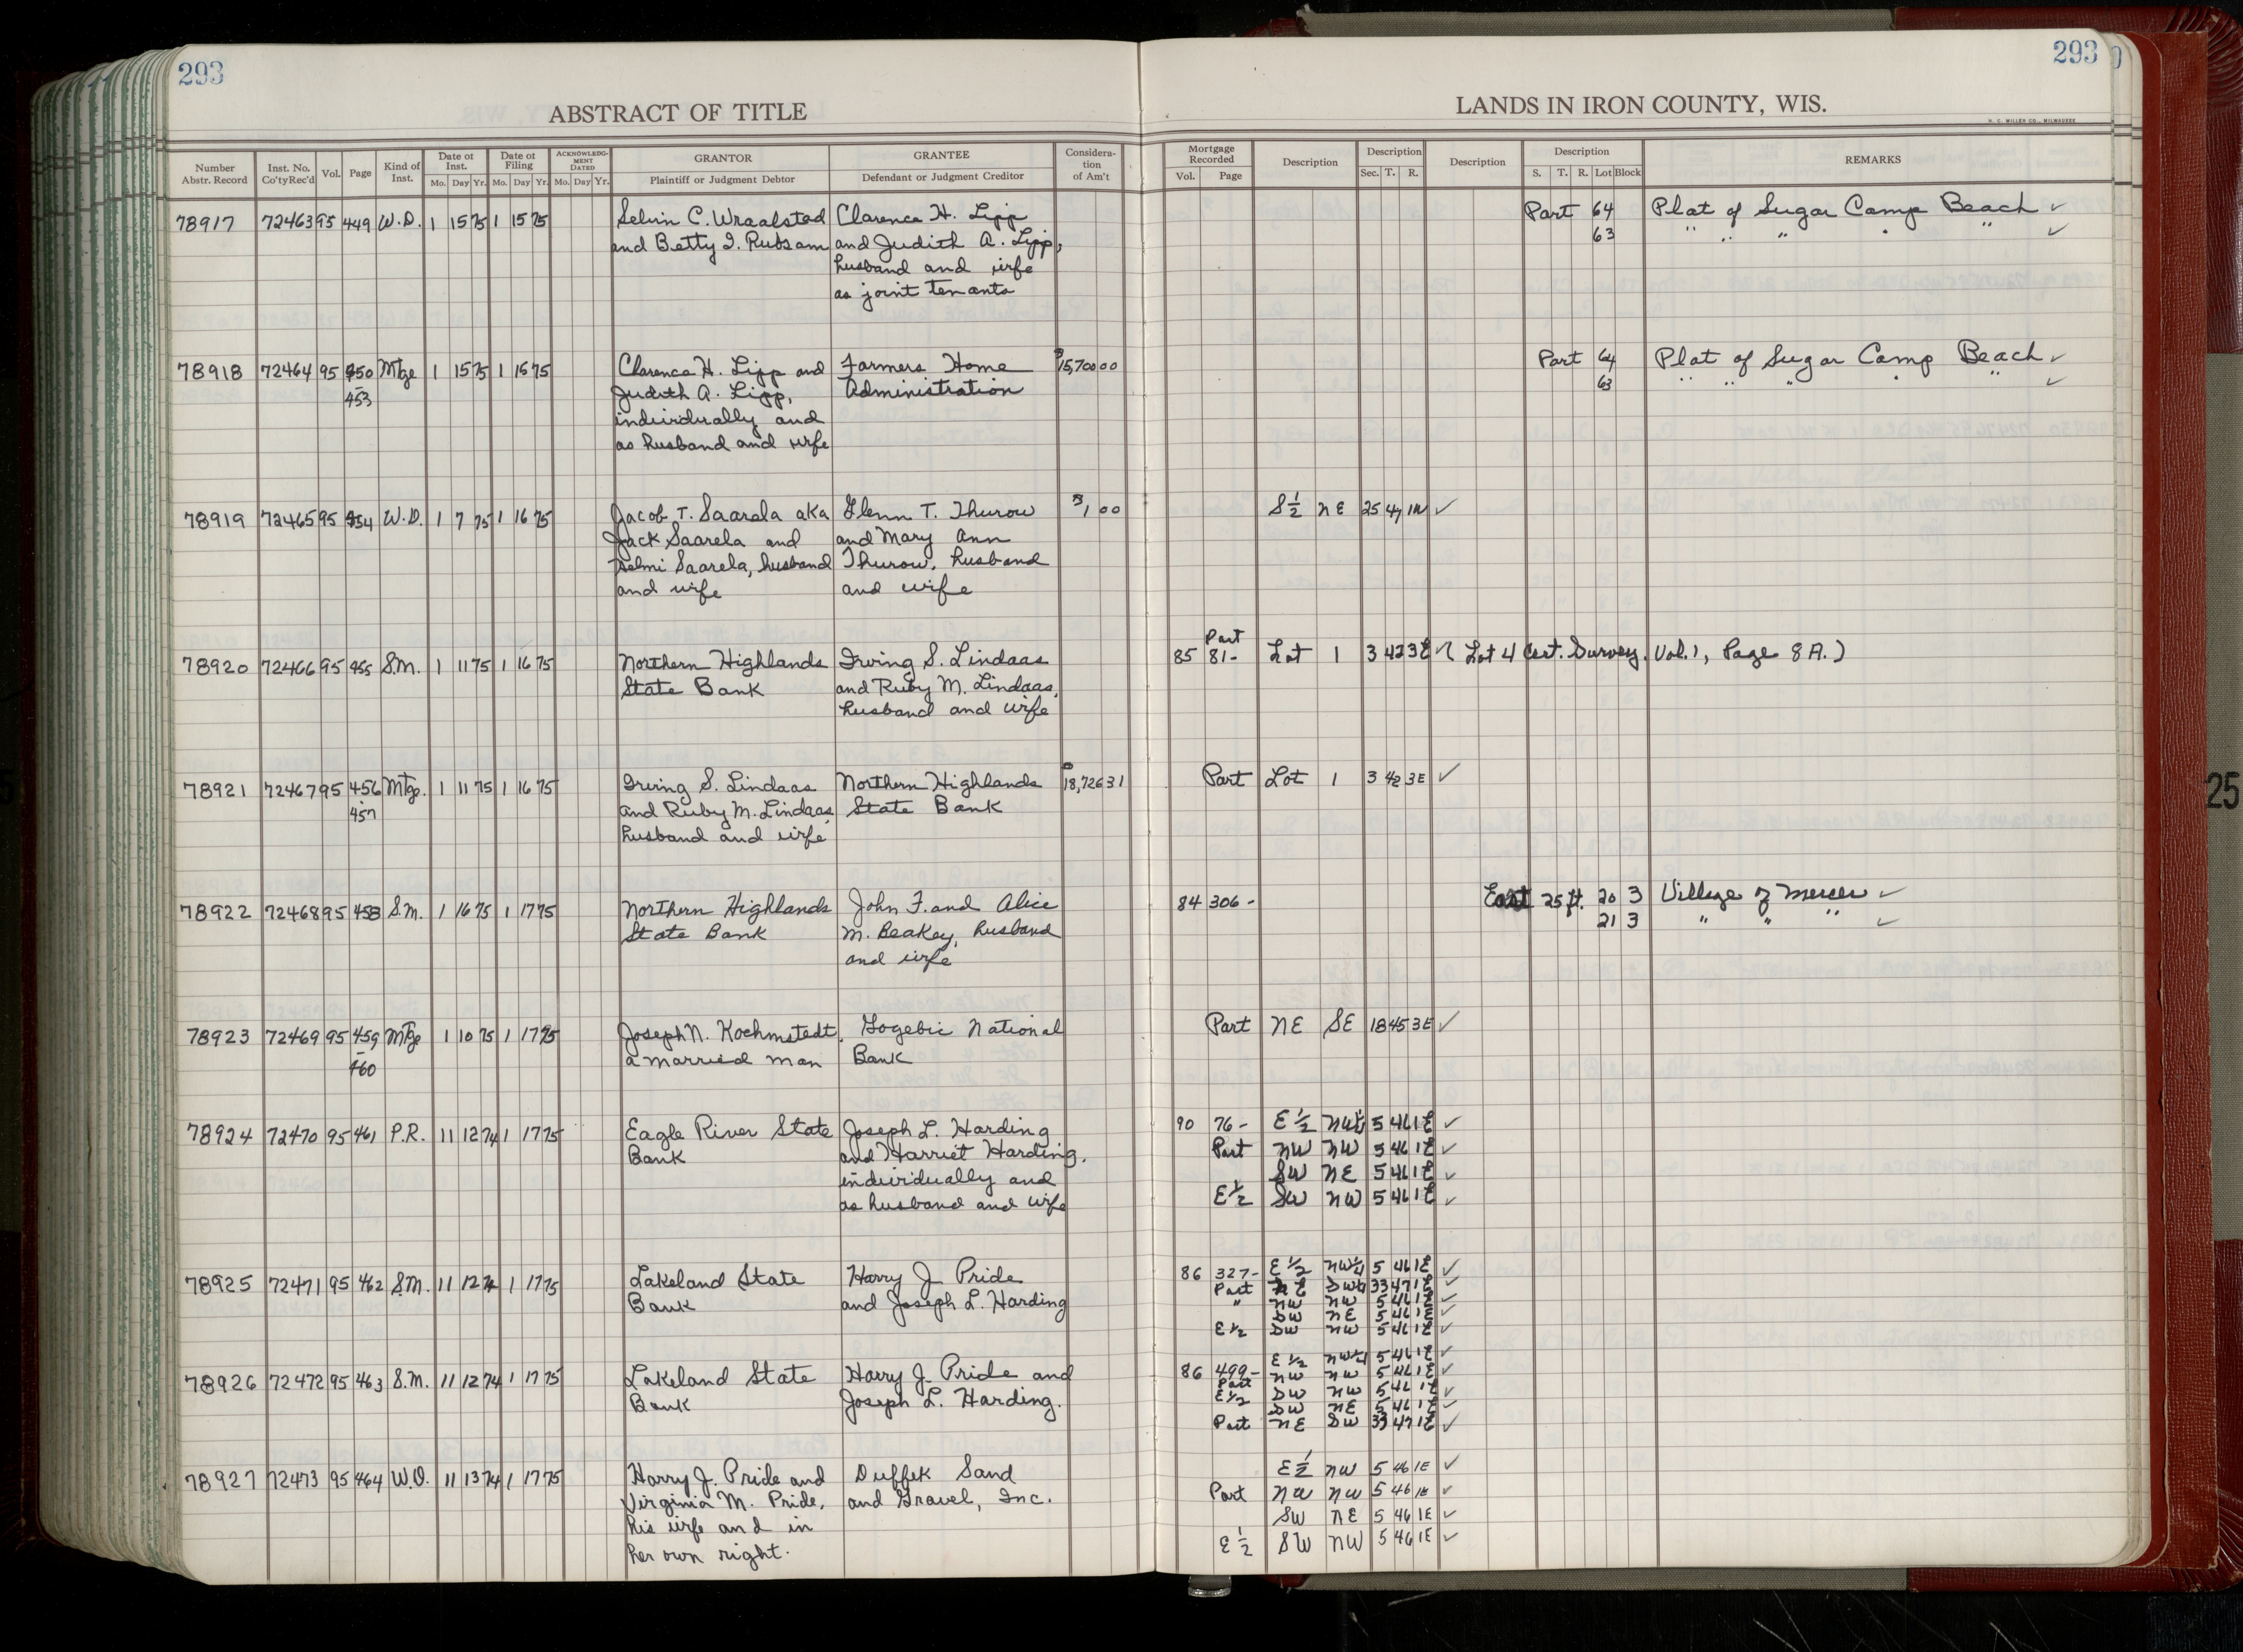 293
293
ABSTRACT OF TITLE
LANDS IN IRON COUNTY, WIS.
H. C. MILLER CO., MILWAUKEE
Number Abstr. Record Inst. No. Co'ty Rec'd Vol. Page Kind of Inst. Date of Inst. Mo. Day Yr. Date of Filing Mo. Day Yr. ACKNOWLEDGMENT DATED Mo. Day Yr. GRANTOR Plaintiff or Judgment Debtor GRANTEE Defendant or Judgment Creditor Consideration of Am't
Mortgage Recorded Vol. Page Description Description Sec. T. R. Description Description S. T. R. Lot Block REMARKS
78917 72463 95 449 W.D. 1 15 75 1 15 75 Selvin C. Wraalstad Clarence H. Lipp Part 64 Plat of Sugar Camp Beach ✓
and Betty I. Rubsam and Judith A. Lipp, 63 " " " " " ✓
husband and wife
as joint tenants
78918 72464 95 450 Mtge 1 15 75 1 15 75 Clarence H. Lipp and Farmers Home $15,700 00 Part 64 Plat of Sugar Camp Beach ✓
-453 Judith A. Lipp, Administration 63 " " " " " ✓
individually and
as husband and wife
78919 72465 95 454 W.D. 1 7 75 1 16 75 Jacob T. Saarela aka Glenn T. Thurow $1 00 S½ NE 25 47 1W ✓
Jack Saarela and and Mary Ann
Selmi Saarela, husband Thurow, husband
and wife and wife
78920 72466 95 455 S.M. 1 11 75 1 16 75 Northern Highlands Irving S. Lindaas 85 81- Part Lot 1 3 42 3E ( Lot 4 Cert. Survey, Vol. 1, Page 8A.)
State Bank and Ruby M. Lindaas,
husband and wife
78921 72467 95 456 Mtge. 1 11 75 1 16 75 Irving S. Lindaas Northern Highlands $18,726 31 Part Lot 1 3 42 3E ✓
-457 and Ruby M. Lindaas, State Bank
husband and wife
78922 72468 95 458 S.M. 1 16 75 1 17 75 Northern Highlands John F. and Alice 84 306- East 25 ft. 20 3 Village of Mercer ✓
State Bank M. Beakey, husband 21 3 " " " ✓
and wife
78923 72469 95 459 Mtge 1 10 75 1 17 75 Joseph N. Kochmstedt, Gogebic National Part NE SE 18 45 3E ✓
-460 a married man Bank
78924 72470 95 461 P.R. 11 12 74 1 17 75 Eagle River State Joseph L. Harding 90 76- E½ NW¼ 5 46 1E ✓
Bank and Harriet Harding, Part NW NW 5 46 1E ✓
individually and SW NE 5 46 1E ✓
as husband and wife E½ SW NW 5 46 1E ✓
78925 72471 95 462 S.M. 11 12 74 1 17 75 Lakeland State Harry J. Pride 86 327- E½ NW¼ 5 46 1E ✓
Bank and Joseph L. Harding Part NE SW¼ 33 47 1E ✓
" NW NW 5 46 1E ✓
SW NE 5 46 1E ✓
E½ SW NW 5 46 1E ✓
78926 72472 95 463 S.M. 11 12 74 1 17 75 Lakeland State Harry J. Pride and 86 499- E½ NW¼ 5 46 1E ✓
Bank Joseph L. Harding. Part NW NW 5 46 1E ✓
E½ SW NW 5 46 1E ✓
SW NE 5 46 1E ✓
Part NE SW 33 47 1E ✓
78927 72473 95 464 W.D. 11 13 74 1 17 75 Harry J. Pride and Duffek Sand E½ NW 5 46 1E ✓
Virginia M. Pride, and Gravel, Inc. Part NW NW 5 46 1E ✓
his wife and in SW NE 5 46 1E ✓
her own right. E½ SW NW 5 46 1E ✓
25